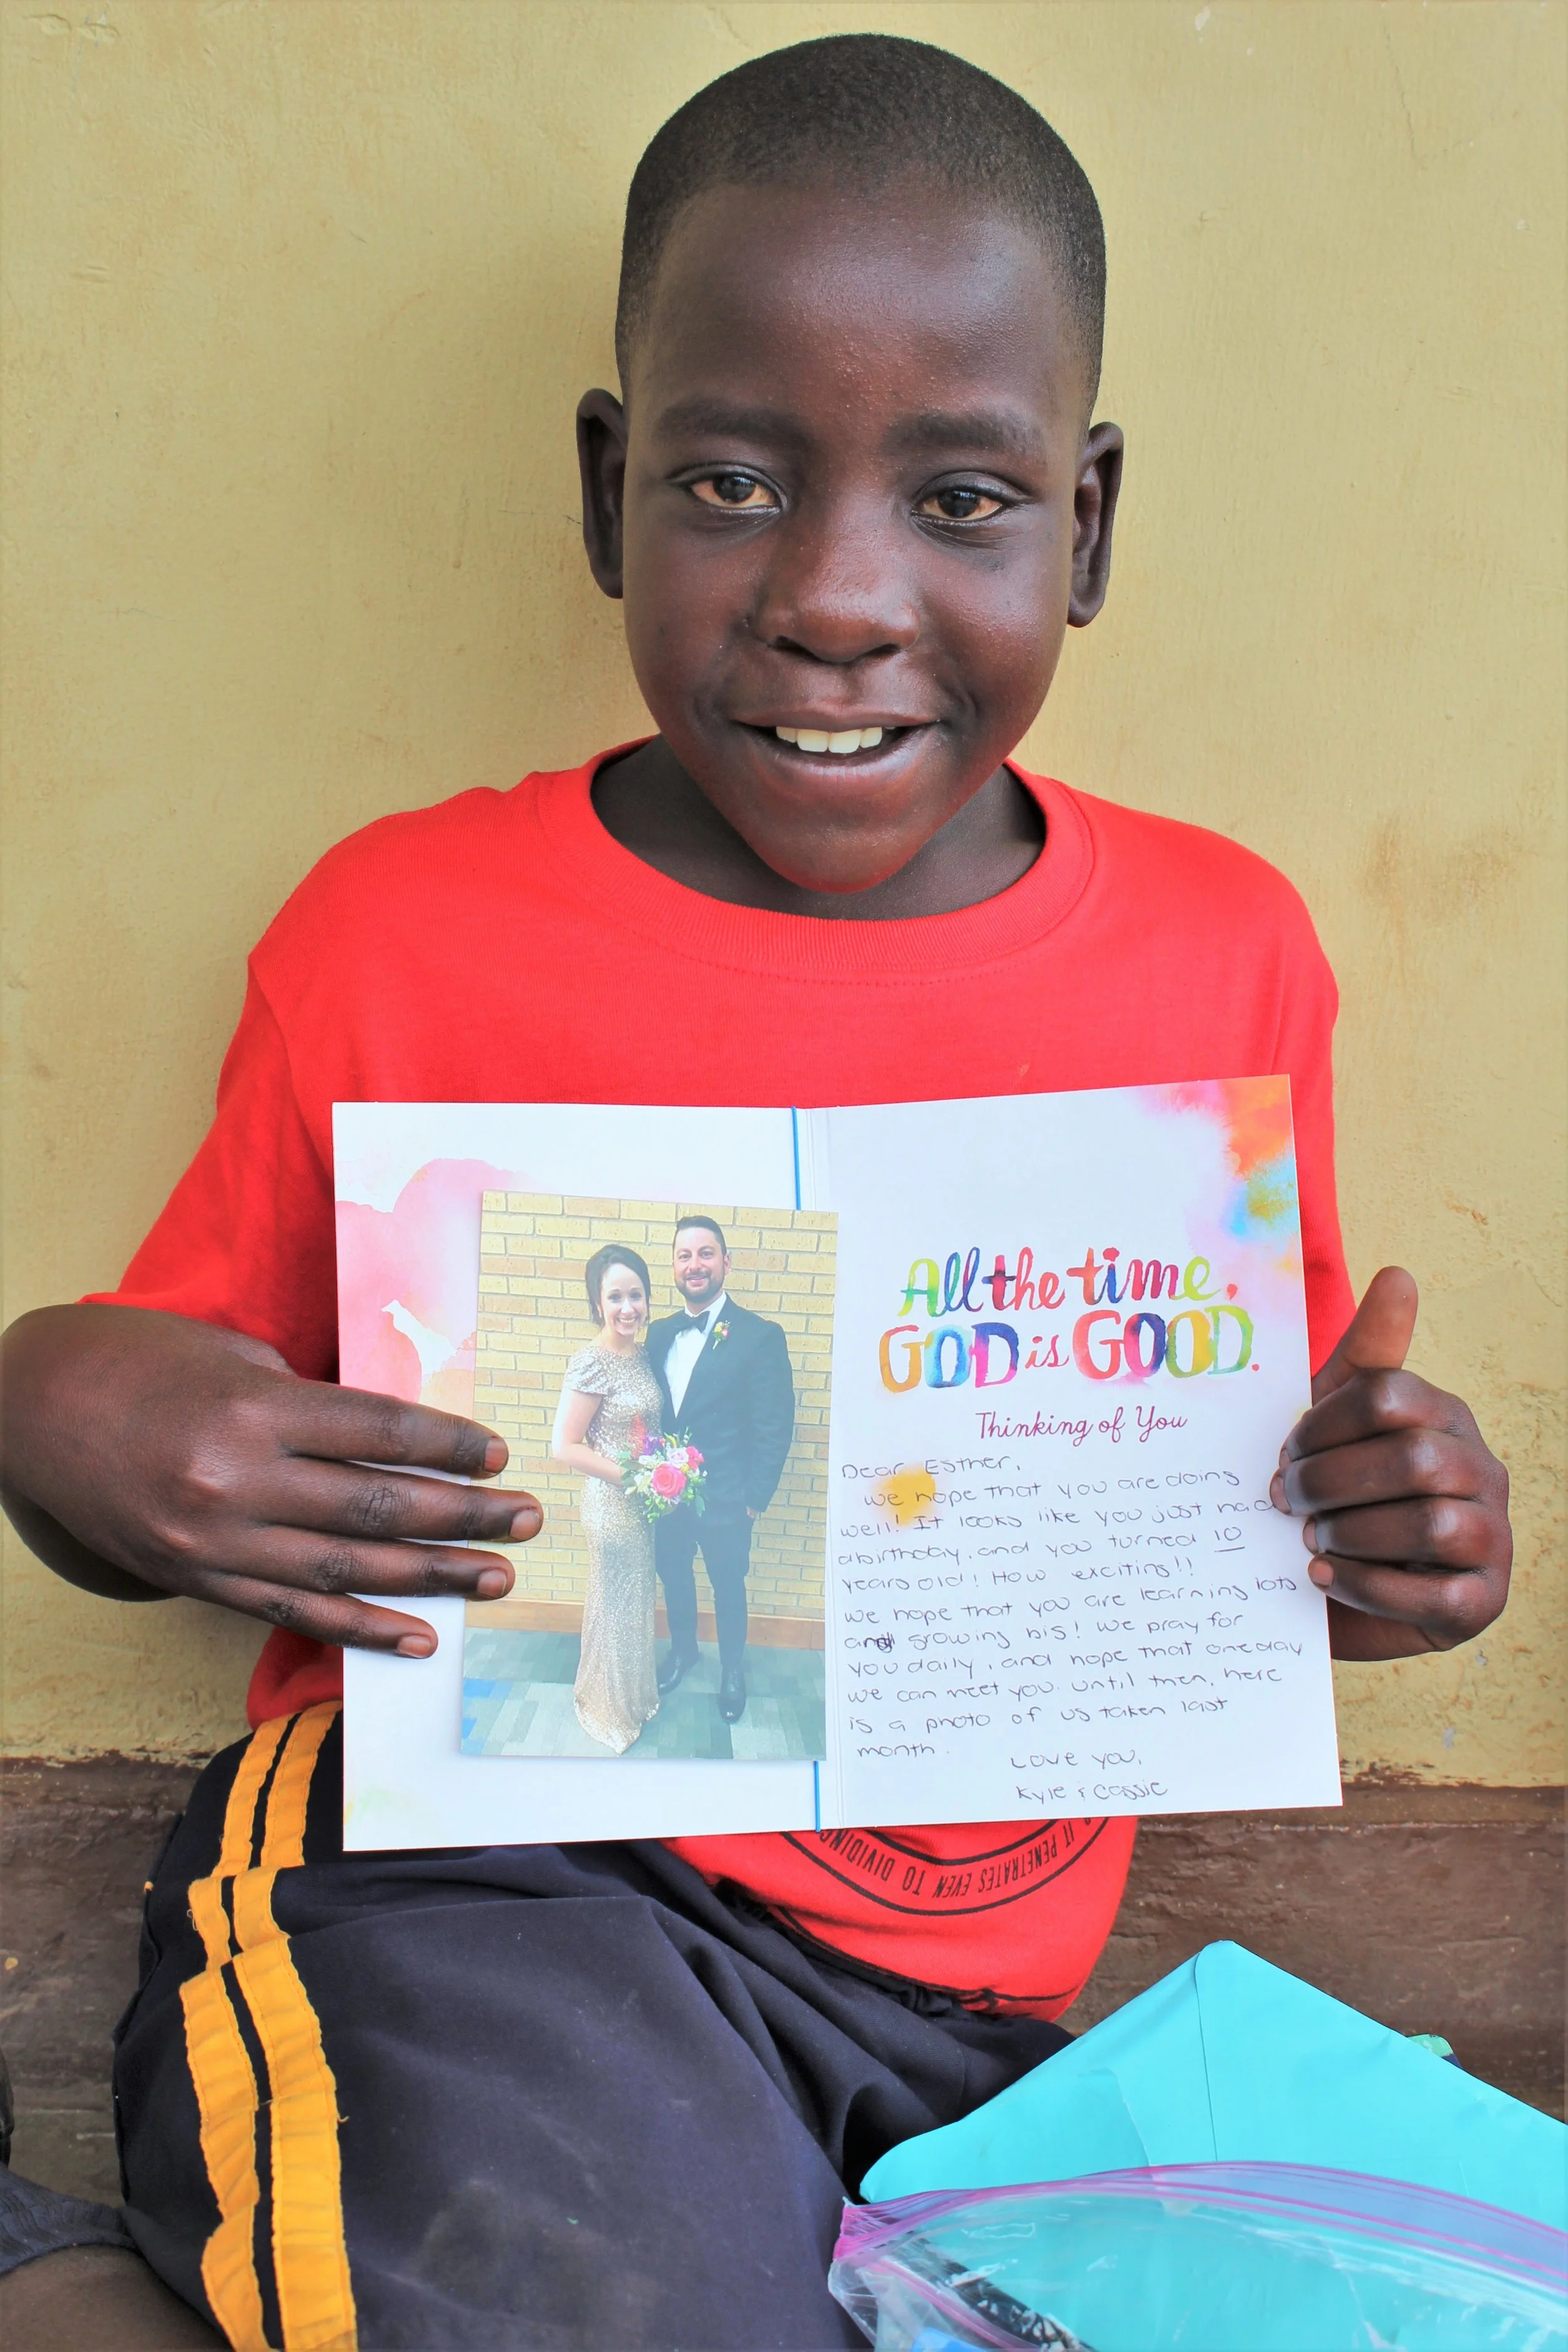 All the time,
GOD is GOOD.
Thinking of You
Dear Esther,
We hope that you are doing
well! It looks like you just had
a birthday, and you turned 10
years old! How exciting!!
We hope that you are learning lots
and growing big! We pray for
you daily, and hope that one day
we can meet you. Until then, here
is a photo of us taken last
month.
Love you,
Kyle & Cassie
IT PENETRATES EVEN TO DIVIDING